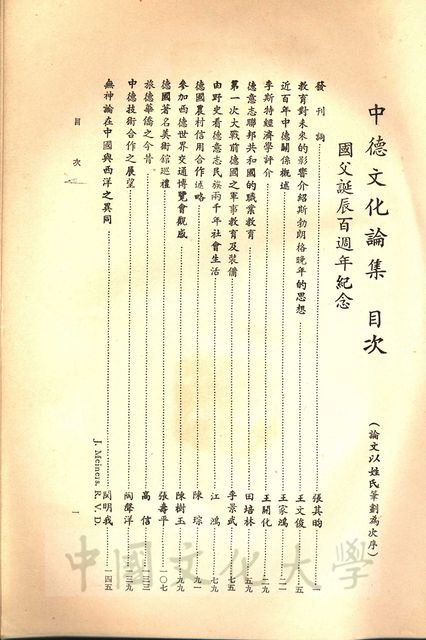 中德文化論集 目次
國父誕辰百週年紀念
(論文以姓氏筆劃為次序)
發刊詞 張其昀 一
教育對未來的影響介紹斯勃朗格晚年的思想 王文俊 五
近百年中德關係概述 王家鴻 二一
李斯特經濟學評介 王開化 二九
德意志聯邦共和國的職業教育 田培林 五九
第一次大戰前德國之軍事教育及裝備 李景武 七五
由野史看德意志民族兩千年社會生活 江鴻 七九
德國農村信用合作述略 陳琮 九一
參加西德世界交通博覽會觀感 陳樹玉 九九
德國著名美術館巡禮 張壽平 一〇七
旅德華僑之今昔 高信 一三三
中德技術合作之展望 陶聲洋 一三九
無神論在中國與西洋之異同 J. Meiners, R. V. D. 閔明我 一四五
目次 一
中國文化大學